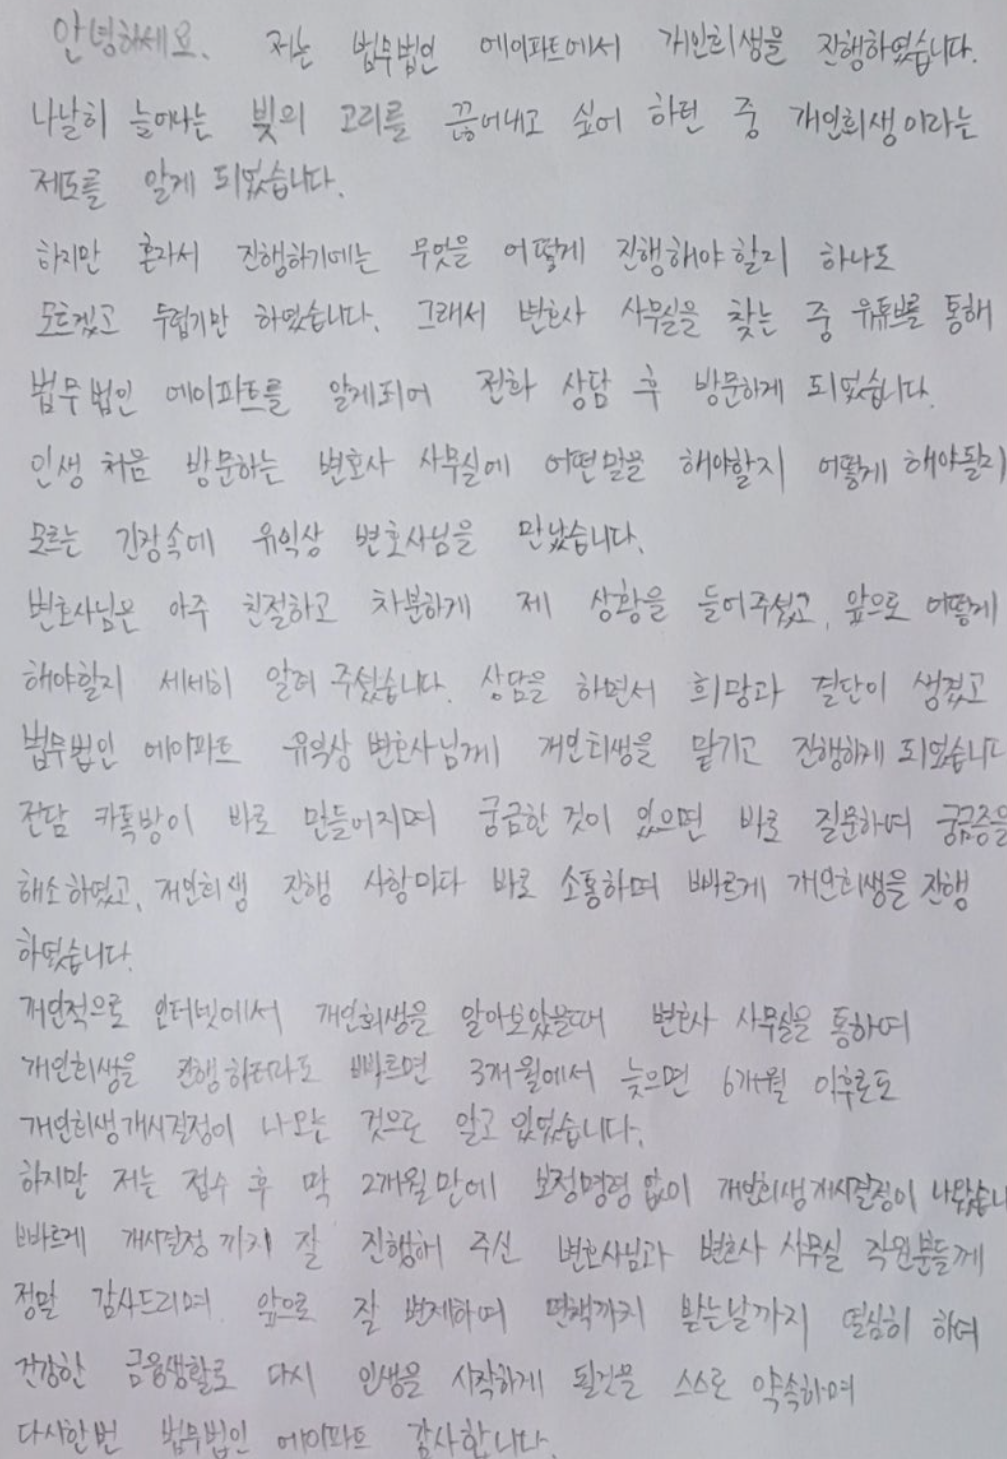 안녕하세요. 저는 법무법인 에이파트에서 개인회생을 진행하였습니다.
나날히 늘어나는 빚의 고리를 끊어내고 싶어 하던 중 개인회생이라는
제도를 알게 되었습니다.
하지만 혼자서 진행하기에는 무엇을 어떻게 진행해야 할지 하나도
모르겠고 두렵기만 하였습니다. 그래서 변호사 사무실을 찾는 중 유튜브를 통해
법무법인 에이파트를 알게되어 전화 상담 후 방문하게 되었습니다.
인생 처음 방문하는 변호사 사무실에 어떤말을 해야할지 어떻게 해야될지
모르는 긴장속에 유익상 변호사님을 만났습니다.
변호사님은 아주 친절하고 차분하게 제 상황을 들어주셨고, 앞으로 어떻게
해야할지 세세히 알려 주셨습니다. 상담을 하면서 희망과 결단이 생겼고
법무법인 에이파트 유익상 변호사님께 개인회생을 맡기고 진행하게 되었습니다
전담 카톡방이 바로 만들어지며 궁금한 것이 있으면 바로 질문하며 궁금증을
해소하였고, 개인회생 진행 사항마다 바로 소통하며 빠르게 개인회생을 진행
하였습니다.
개인적으로 인터넷에서 개인회생을 알아보았을때 변호사 사무실을 통하여
개인회생을 진행하더라도 빠르면 3개월에서 늦으면 6개월 이후로도
개인회생개시결정이 나오는 것으로 알고 있었습니다.
하지만 저는 접수 후 딱 2개월만에 보정명령 없이 개인회생개시결정이 나왔습니
빠르게 개시결정까지 잘 진행해 주신 변호사님과 변호사 사무실 직원분들께
정말 감사드리며 앞으로 잘 변제하며 면책까지 받는날까지 열심히 하여
건강한 금융생활로 다시 인생을 시작하게 될것을 스스로 약속하며
다시한번 법무법인 에이파트 감사합니다.